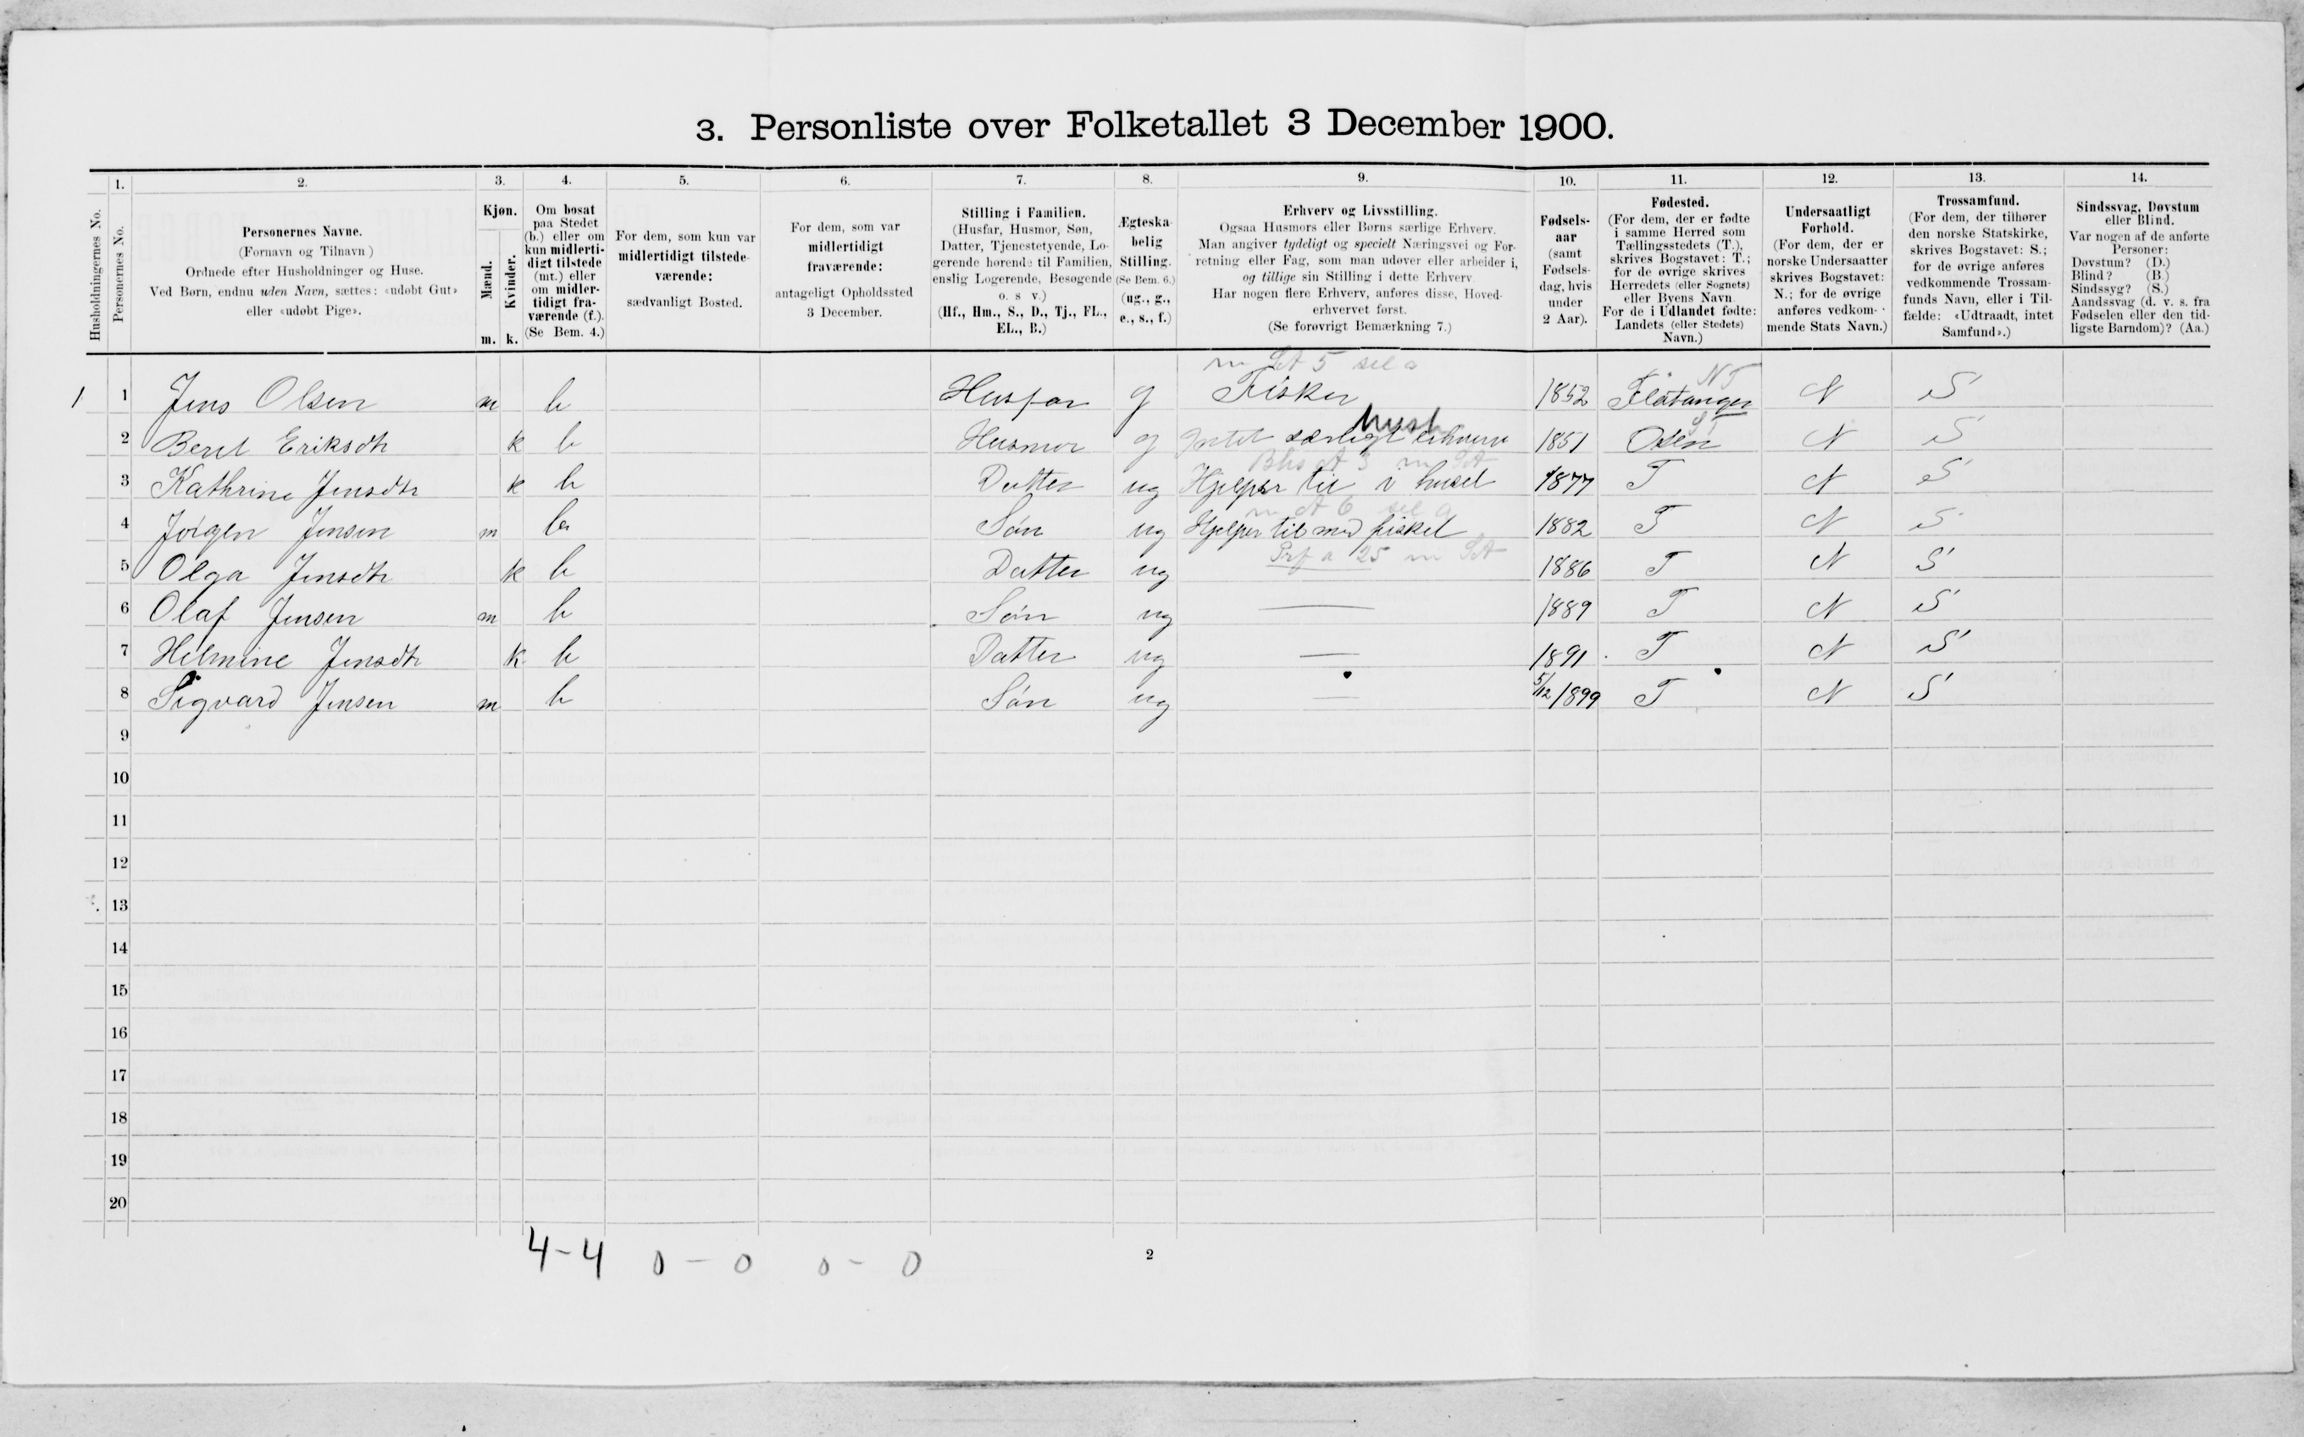 3. Personliste over Folketallet 3 December 1900.
1. 2. 3. 4. 5. 6. 7. 8. 9. 10. 11. 12. 13. 14.
Husholdningernes No.
Personernes No.
Personernes Navne.
(Fornavn og Tilnavn)
Ordnede efter Husholdninger og Huse.
Ved Børn, endnu uden Navn, sættes: «udøbt Gut»
eller «udøbt Pige».
Kjøn.
Mænd.
Kvinder.
m. k.
Om bosat
paa Stedet
(b.) eller om
kun midlerti-
digt tilstede
(mt.) eller
om midler-
tidigt fra-
værende (f.).
(Se Bem. 4.)
For dem, som kun var
midlertidigt tilstede-
værende:
sædvanligt Bosted.
For dem, som var
midlertidigt
fraværende:
antageligt Opholdssted
3 December.
Stilling i Familien.
(Husfar, Husmor, Søn,
Datter, Tjenestetyende, Lo-
gerende hørende til Familien,
enslig Logerende, Besøgende
o. s v.)
(Hf., Hm., S., D., Tj., FL.,
EL., B.)
Ægteska-
belig
Stilling.
(Se Bem. 6.)
(ug., g.,
e., s., f.)
Erhverv og Livsstilling.
Ogsaa Husmors eller Børns særlige Erhverv.
Man angiver tydeligt og specielt Næringsvei og For-
retning eller Fag, som man udøver eller arbeider i,
og tillige sin Stilling i dette Erhverv.
Har nogen flere Erhverv, anføres disse, Hoved-
erhvervet først.
(Se forøvrigt Bemærkning 7.)
Fødsels-
aar
(samt
Fødsels-
dag, hvis
under
2 Aar).
Fødested.
(For dem, der er fødte
i samme Herred som
Tællingsstedets (T.),
skrives Bogstavet: T.;
for de øvrige skrives
Herredets (eller Sognets)
eller Byens Navn.
For de i Udlandet fødte:
Landets (eller Stedets)
Navn.)
Undersaatligt
Forhold.
(For dem, der er
norske Undersaatter
skrives Bogstavet:
N.; for de øvrige
anføres vedkom-
mende Stats Navn.)
Trossamfund.
(For dem, der tilhører
den norske Statskirke,
skrives Bogstavet: S.;
for de øvrige anføres
vedkommende Trossam-
funds Navn, eller i Til-
fælde: «Udtraadt, intet
Samfund».)
Sindssvag, Døvstum
eller Blind.
Var nogen af de anførte
Personer:
Døvstum? (D.)
Blind? (B.)
Sindssyg? (S.)
Aandssvag (d. v. s. fra
Fødselen eller den tid-
ligste Barndom)? (Aa.)
NT
1 1 Jens Olsen m b Husfar g Fisker 1852 Flatanger N S
husm
ST
2 Beret Eriksdtr k b Husmor g Intet særligt erhverv 1851 Osen N S
3 Kathrine Jensdtr k b Datter ug Hjelper til i huset 1877 T N S
4 Jørgen Jensen m b Søn ug Hjelper til med fisket 1882 T N S
5 Olga Jensdtr k b Datter ug 1886 T N S
6 Olaf Jensen m b Søn ug — 1889 T N S
7 Helmine Jensdtr k b Datter ug — 1891 T N S
8 Sigvard Jensen m b Søn ug — 5/12 1899 T N S
9
10
11
12
13
14
15
16
17
18
19
20
4-4 0-0 0-0
2